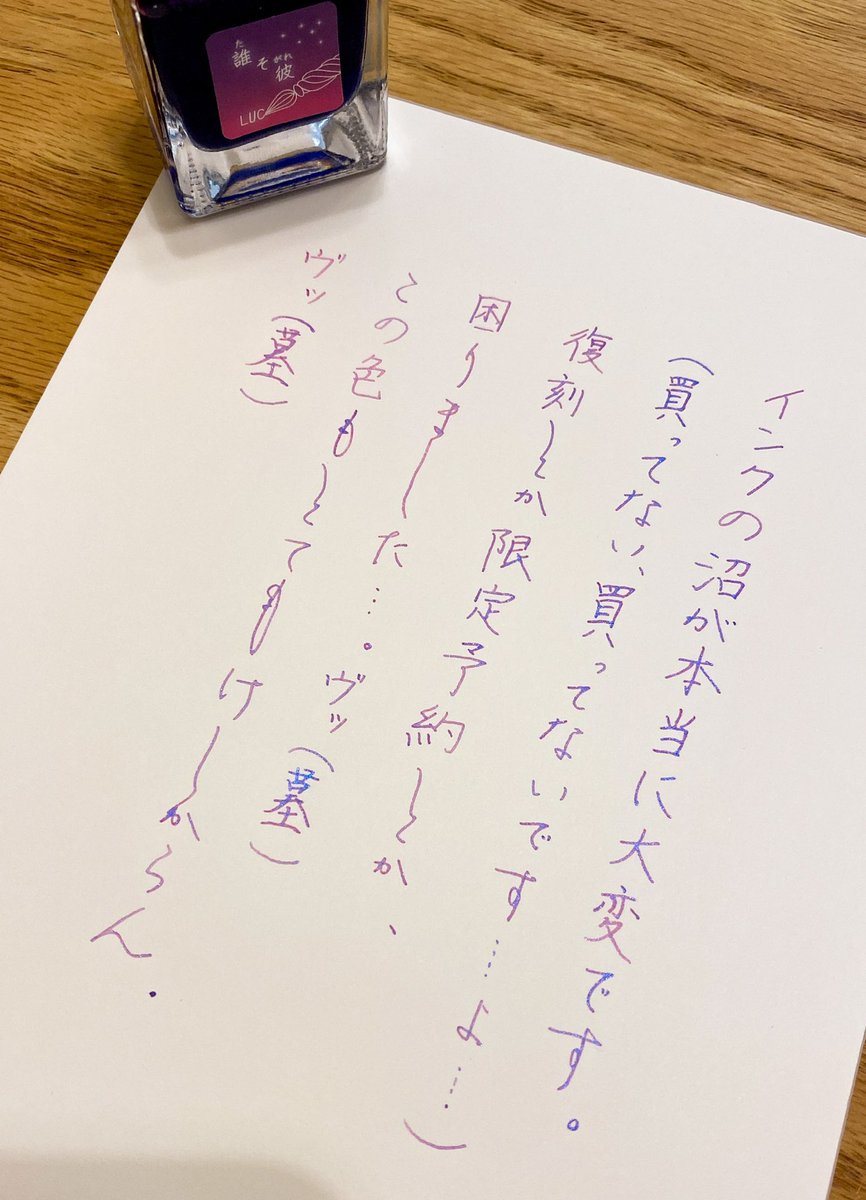 た がれ
誰そ彼
LUC
インクの沼が本当に大変です。
(買ってない、買ってないです……よ……)
復刻とか限定予約とか、
困りました…。ヴッ(墓)
この色もとてもけしからん.
ヴッ(墓)